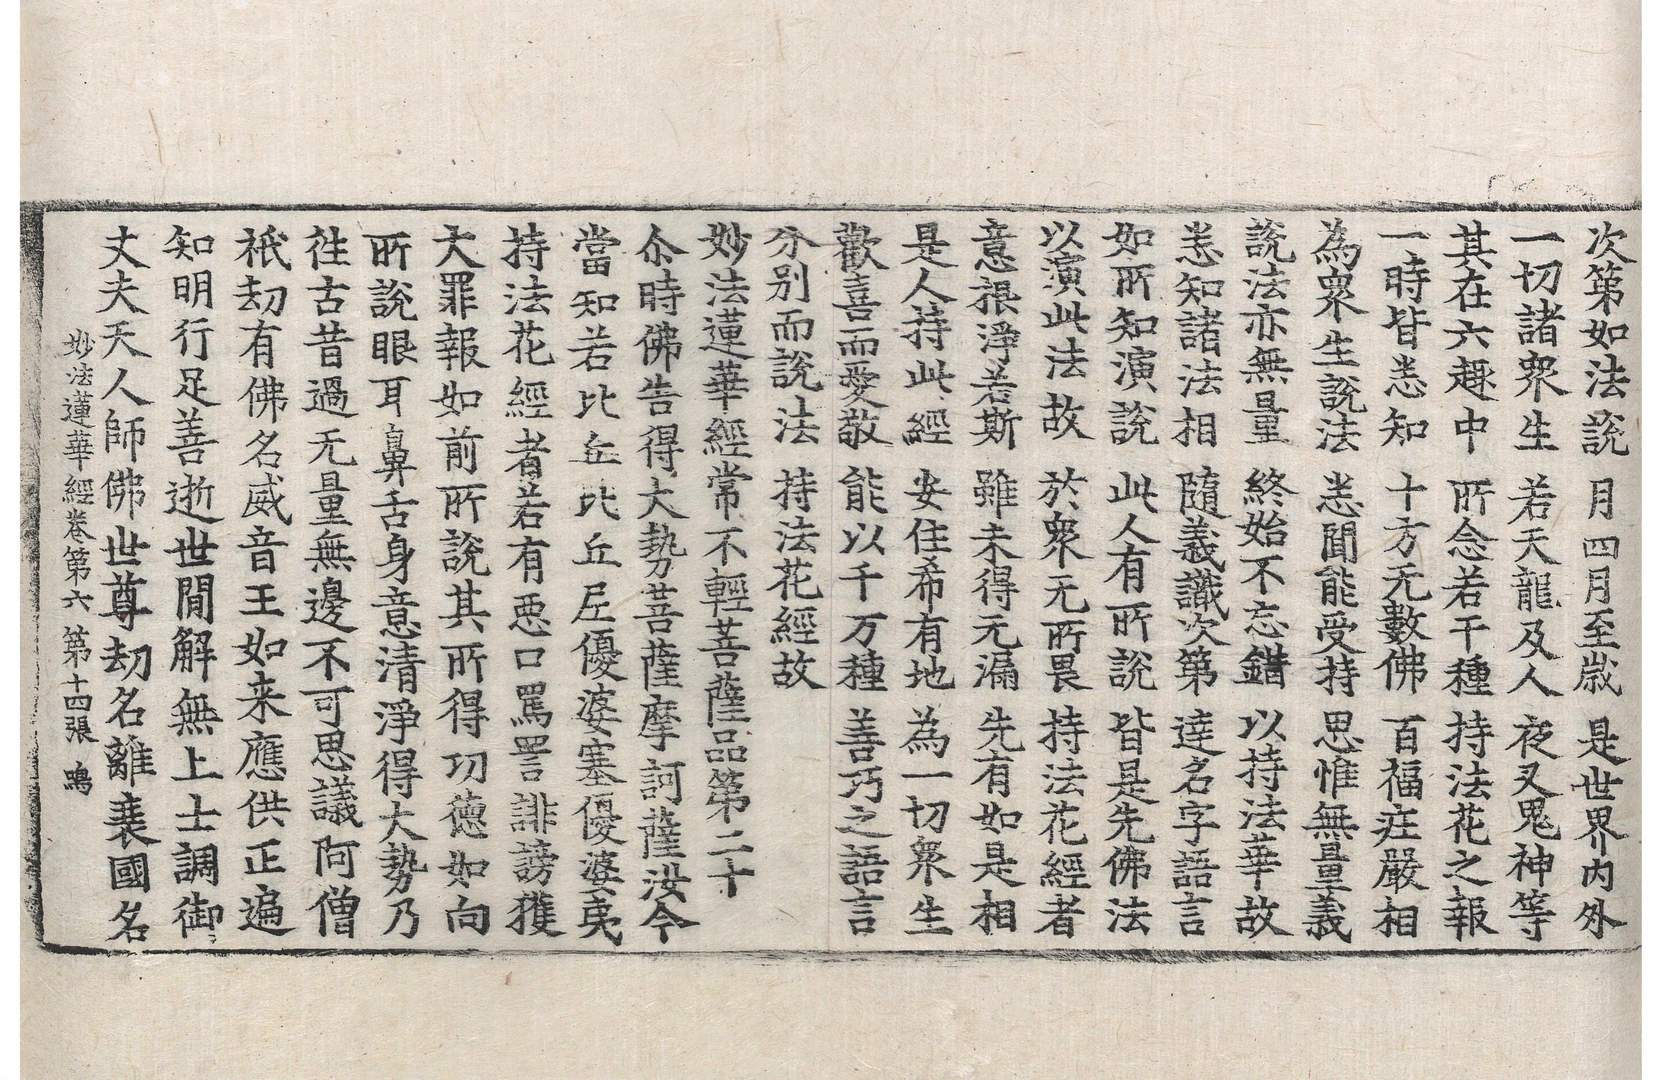 次第如法説　月四月至歳　是世界内外
一切諸衆生　若天龍及人　夜叉鬼神等
其在六趣中　所念若干種　持法花之報
一時皆悉知　十方无數佛　百福莊嚴相
為衆生説法　悉聞能受持　思惟無量義
說法亦無量　終始不忘錯　以持法華故
悉知諸法相　隨義識次第　達名字語言
如所知演說　此人有所說　皆是先佛法
以演此法故　於衆无所畏　持法花經者
意根淨若斯　雖未得无漏　先有如是相
是人持此經　安住希有地　為一切衆生
歡喜而愛敬　能以千万種　善巧之語言
分別而說法　持法花經故
妙法蓮華經常不輕菩薩品第二十
尒時佛告得大勢菩薩摩訶薩汝今
當知若比丘比丘尼優婆塞優婆夷
持法花經者若有惡口罵詈誹謗獲
大罪報如前所說其所得功德如向
所說眼耳鼻舌身意清淨得大勢乃
往古昔過无量無邊不可思議阿僧
祇劫有佛名威音王如来應供正遍
知明行足善逝世間解無上士調御
丈夫天人師佛世尊劫名離衰國名
妙法蓮華經卷第六　第十四張　鳴